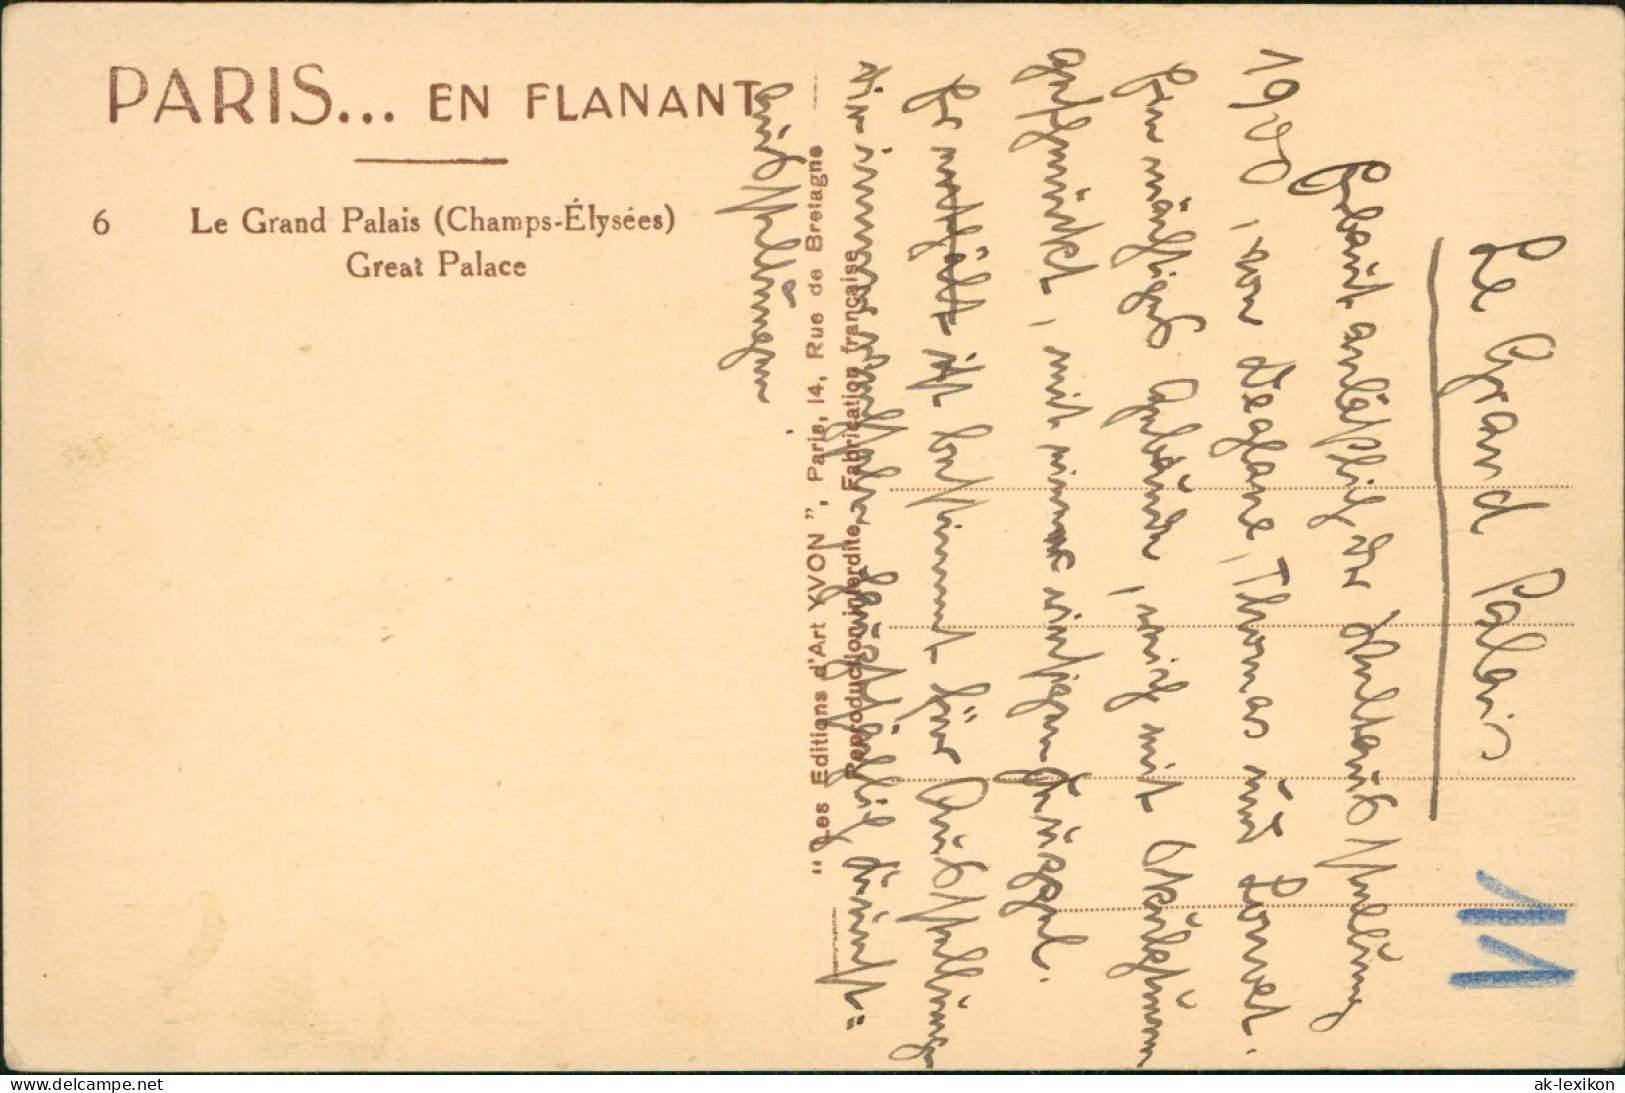 PARIS... EN FLANANT
6 Le Grand Palais (Champs-Élysées)
Great Palace
"Les Editions d'Art YVON", Paris, 14, Rue de Bretagne
Reproduction interdite. Fabrication française
Le Grand Palais
Erbaut anläßlich der Weltausstellung
1900, von Deglane, Thomas und Louvet.
Ein mächtiges Gebäude, reich mit Skulpturen
geschmückt, mit einer riesigen Kuppel.
Es ist bestimmt für Ausstellung
die immer alljährlich Kunst=
ausstellungen.
VI